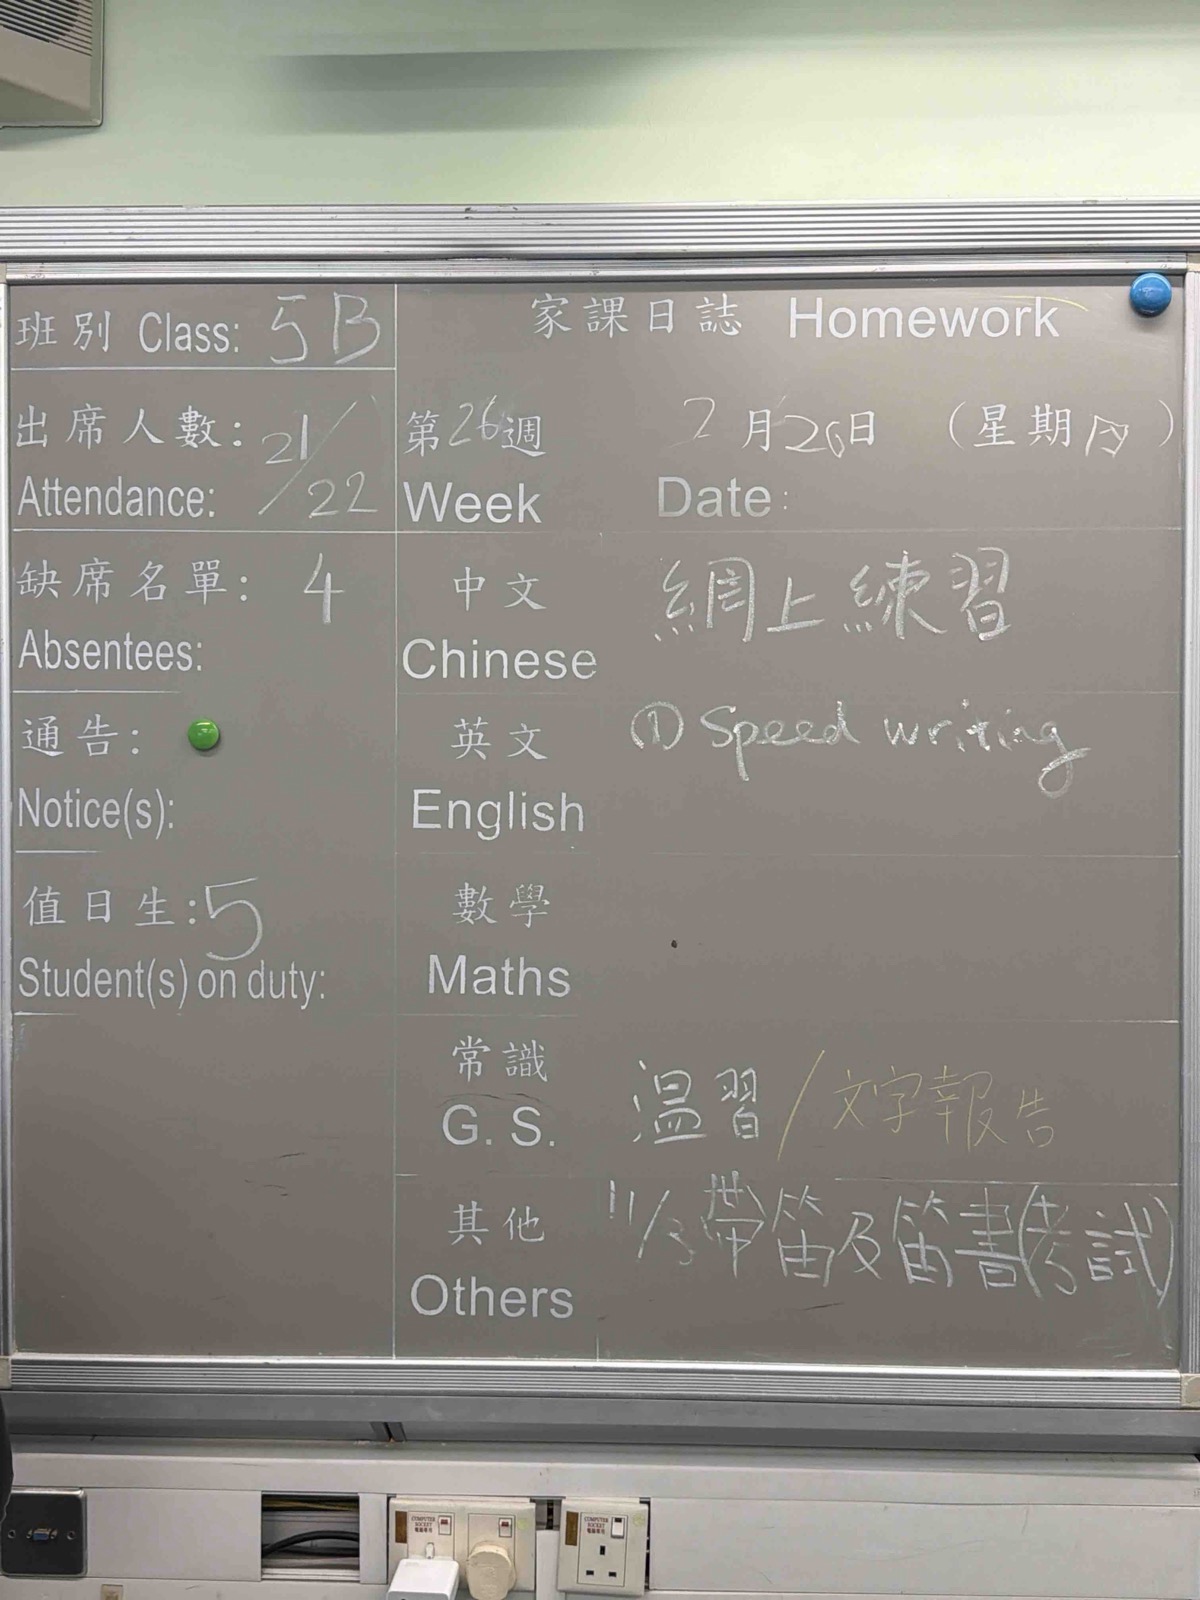 班別 Class: 5B
家課日誌 Homework
出席人數: 21/22
Attendance:
第26週 2月26日 (星期四)
Week Date:
缺席名單: 4
Absentees:
中文 網上練習
Chinese
通告:
Notice(s):
英文 ① Speed writing
English
值日生: 5
Student(s) on duty:
數學
Maths
常識 溫習 / 文字報告
G. S.
其他 11/3 帶笛及笛書(考試)
Others
COMPUTER SOCKET
電腦專用
COMPUTER SOCKET
電腦專用